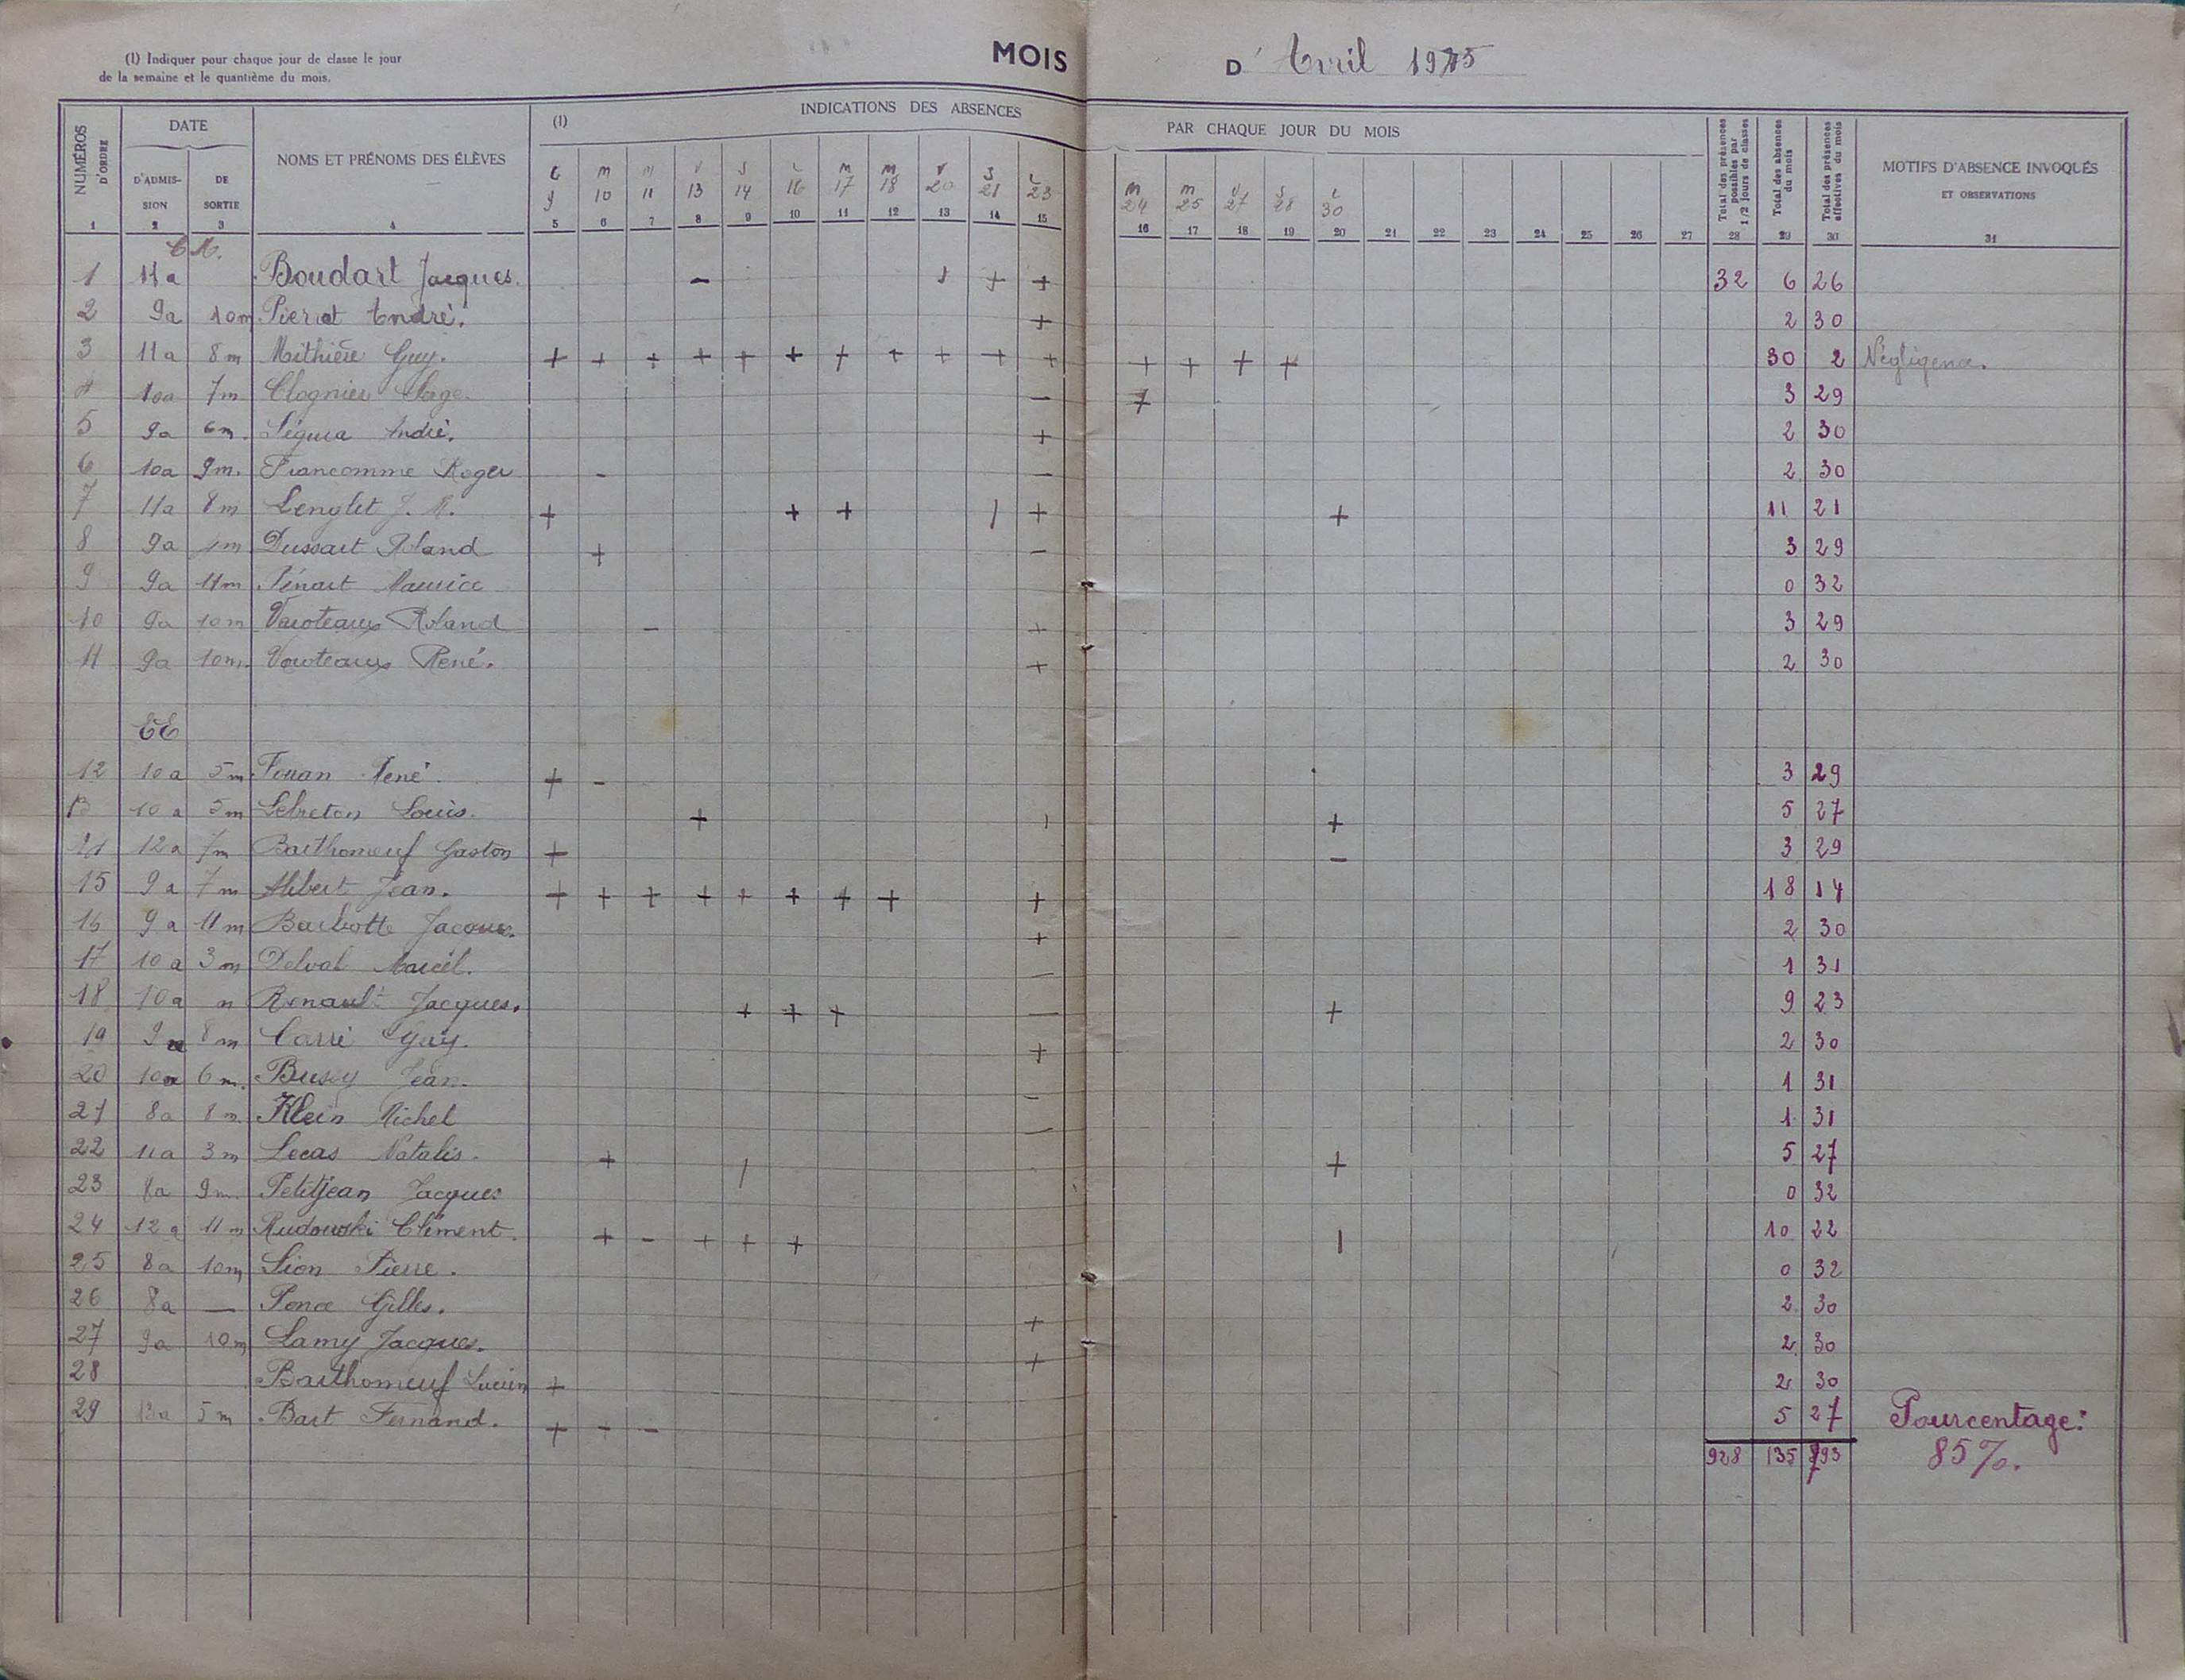 (1) Indiquer pour chaque jour de classe le jour
de la semaine et le quantième du mois.
MOIS D' Avril 1945
NUMÉROS D'ORDRE
DATE
D'ADMISSION
DE SORTIE
NOMS ET PRÉNOMS DES ÉLÈVES
(1) INDICATIONS DES ABSENCES PAR CHAQUE JOUR DU MOIS
Total des présences possibles par 1/2 jours de classes
Total des absences du mois
Total des présences effectives du mois
MOTIFS D'ABSENCE INVOQUÉS
ET OBSERVATIONS
L m m V S L m m V S L m m V S L
9 10 11 13 14 16 17 18 20 21 23 24 25 27 28 30
1 2 3 4 5 6 7 8 9 10 11 12 13 14 15 16 17 18 19 20 21 22 23 24 25 26 27 28 29 30 31
C M.
1 11a Boudart Jacques. - + + 32 6 26
2 9a 10m Pierrat André. + 2 30
3 11a 8m Mithière Guy. + + + + + + + + + + + + + + + 30 2 Négligence.
4 10a 7m Clognier Serge. - + 3 29
5 9a 6m. Ségura André. + 2 30
6 10a 9m. Francomme Roger - - 2 30
7 11a 8m Lenglet J. M. + + + | + + 11 21
8 9a 4m Dussart Roland + - 3 29
9 9a 11m Pénart Maurice 0 32
10 9a 10m Varoteaux Roland - + 3 29
11 9a 10m. Varoteaux René. + 2 30
CE
12 10a 5m Fouan René. + - 3 29
13 10a 5m Lebreton Louis. + | + 5 27
14 12a 7m Barthomeuf Gaston + - 3 29
15 9a 7m Hibert Jean. + + + + + + + + + 18 14
16 9a 11m Barbotte Jacques. + 2 30
17 10a 3m Delval Marcel. - 1 31
18 10a m Renault Jacques. + + + - + 9 23
19 9a 8m Carré Guy. + 2 30
20 10a 6m. Busey Jean. - 1 31
21 8a 8m. Klein Michel - 1 31
22 11a 3m Lecas Natalis. + | + 5 27
23 8a 9m. Petitjean Jacques 0 32
24 12a 11m Rudowski Clément. + - + + + | 10 22
25 8a 10m Sion Pierre. 0 32
26 8a — Ponce Gilles. + 2 30
27 9a 10m Lamy Jacques. + 2 30
28 Barthomeuf Lucien + 2 30
29 13a 5m Bart Fernand. + - - 5 27 Pourcentage:
928 135 793 85%.